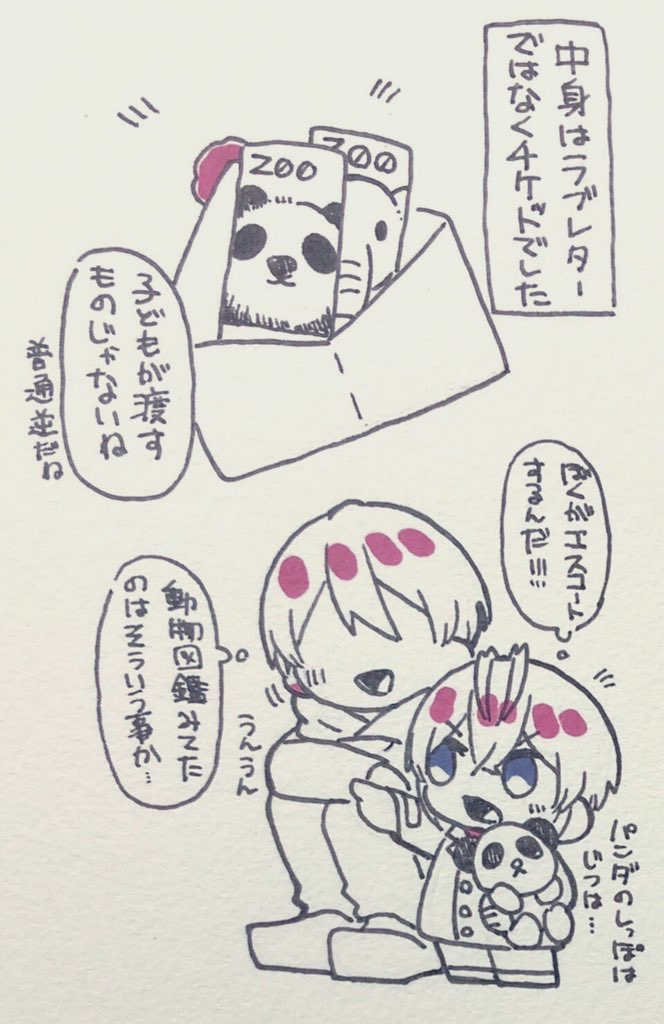 中身はラブレター
ではなくチケットでした
ZOO
ZOO
子どもが渡す
ものじゃないね
普通逆だね
ぼくがエスコート
するんだ!!!
動物図鑑みてた
のはそういう事か…
うんうん
パンダのしっぽは
じつは…